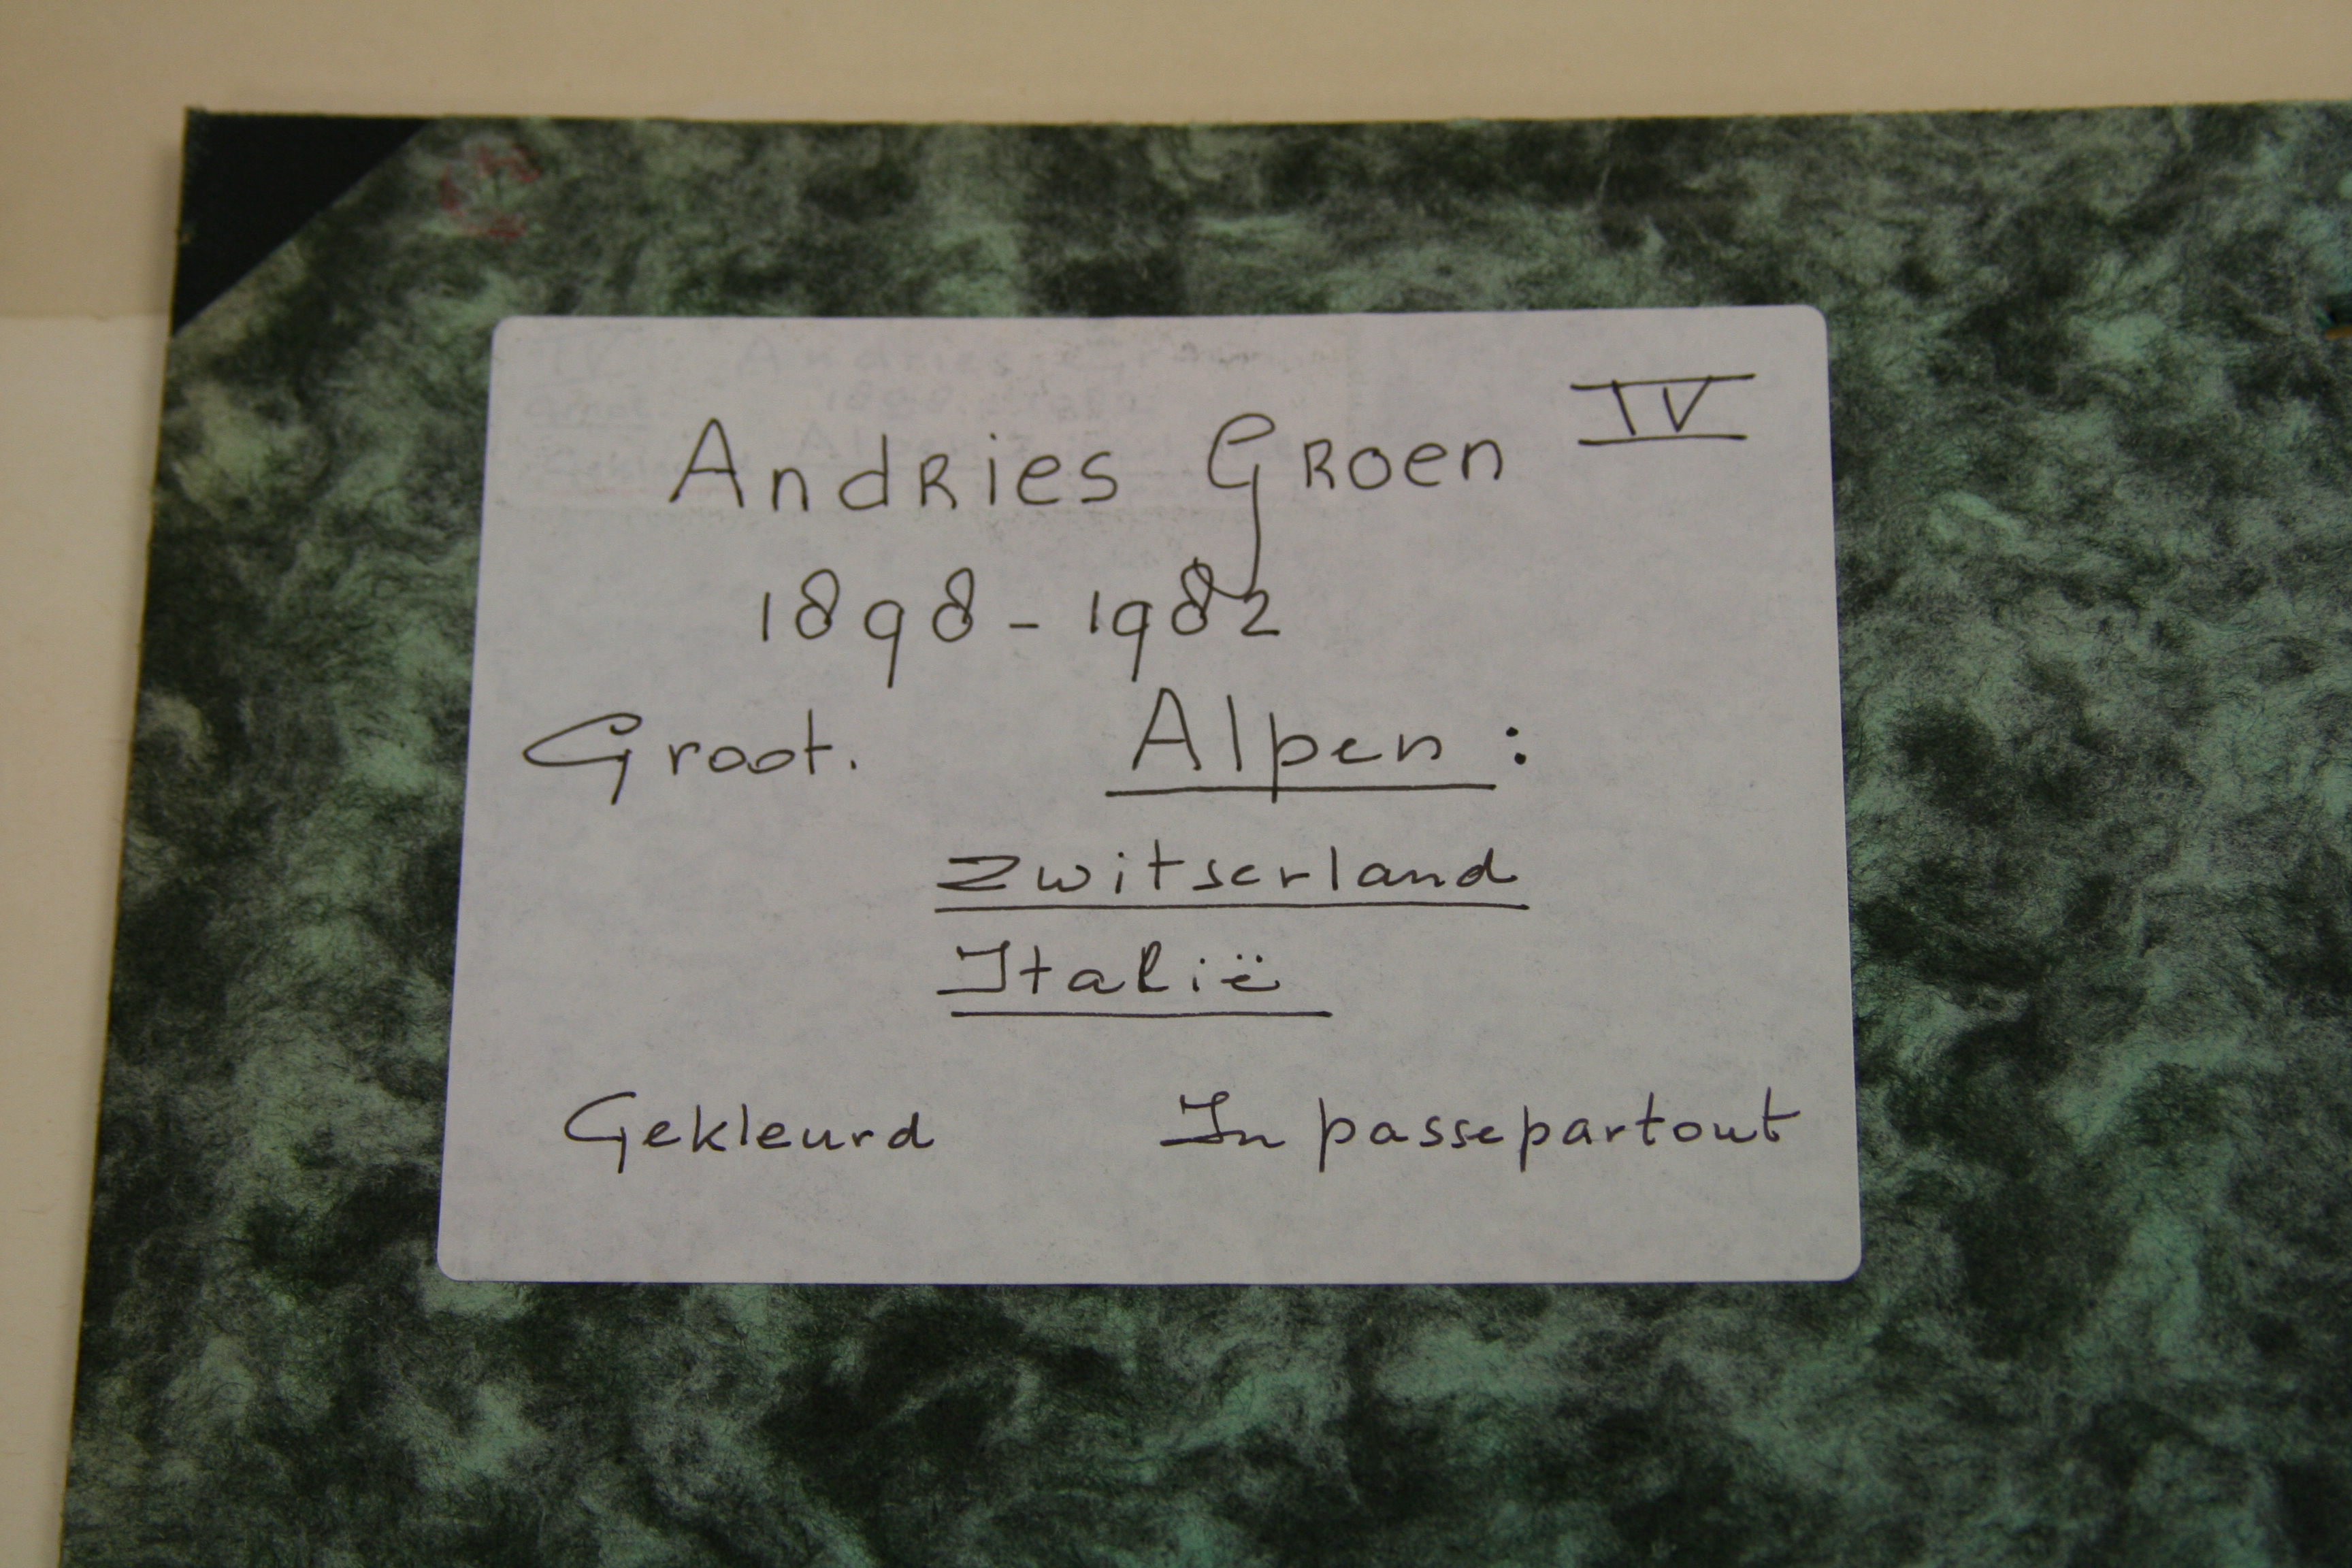 Andries Groen IV
1898 - 1982
Groot. Alpen :
Zwitserland
Italië
Gekleurd In passepartout